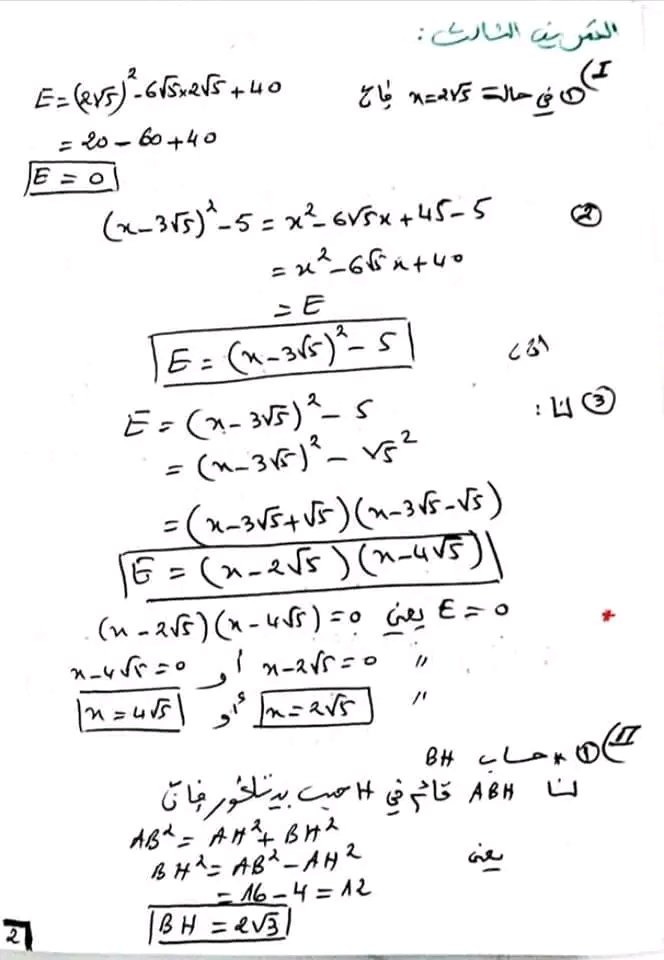 التمرين الثالث :
I) ① في حالة x=2√5 فإن
E = (2√5)² - 6√5×2√5 + 40
= 20 - 60 + 40
E = 0
② (x-3√5)² - 5 = x² - 6√5x + 45 - 5
= x² - 6√5x + 40
= E
E = (x-3√5)² - 5
③ لنا : E = (x-3√5)² - 5
= (x-3√5)² - √5²
= (x-3√5+√5)(x-3√5-√5)
E = (x-2√5)(x-4√5)
* E = 0 يعني (x-2√5)(x-4√5) = 0
" x-2√5=0 أو x-4√5=0
" x=2√5 أو x=4√5
II) ① * حساب BH
لنا ABH قائم في H حسب بيتاغور فإن
AB² = AH² + BH²
يعني BH² = AB² - AH²
= 16 - 4 = 12
BH = 2√3
2